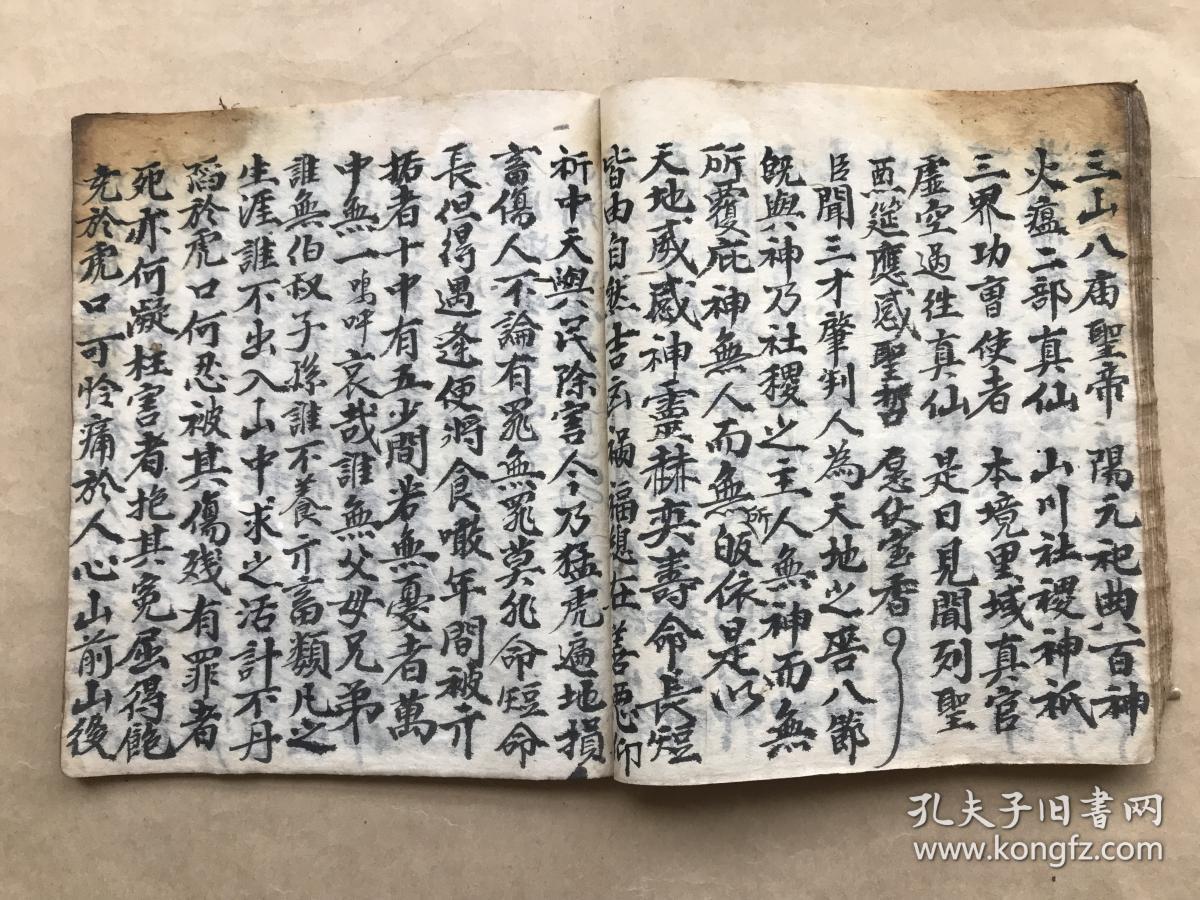 三山八庙聖帝 陽元祀典百神
火瘟二部真仙 山川社稷神祇
三界功曹使者 本境里域真官
虛空過往真仙 是日見聞列聖
恿筵應感聖哲 愿仗宝香
臣聞三才肇判人為天地之灵八節
既與神乃社稷之主人無神而無
所覆庇神無人而無所皈依是以
天地威感神靈赫奕壽命長短
皆由自然吉玄禍福總在善惡仰
祈中天與民除害今乃猛虎遍地損
畜傷人不論有罪無罪莫非命短命
長但得遇逢便將食噉年間被亓
掂者十中有五少間若無憂者萬
中無一嗚呼哀哉誰無父母兄弟
誰無伯叔子孫誰不養亓畜類凡之
生涯誰不出入山中求之活計不丹
滔於虎口何忍被其傷残有罪者
死亦何凝枉害者抱其冤屈得飽
充於虎口可怜痛於人心山前山後
孔夫子旧书网
www.kongfz.com